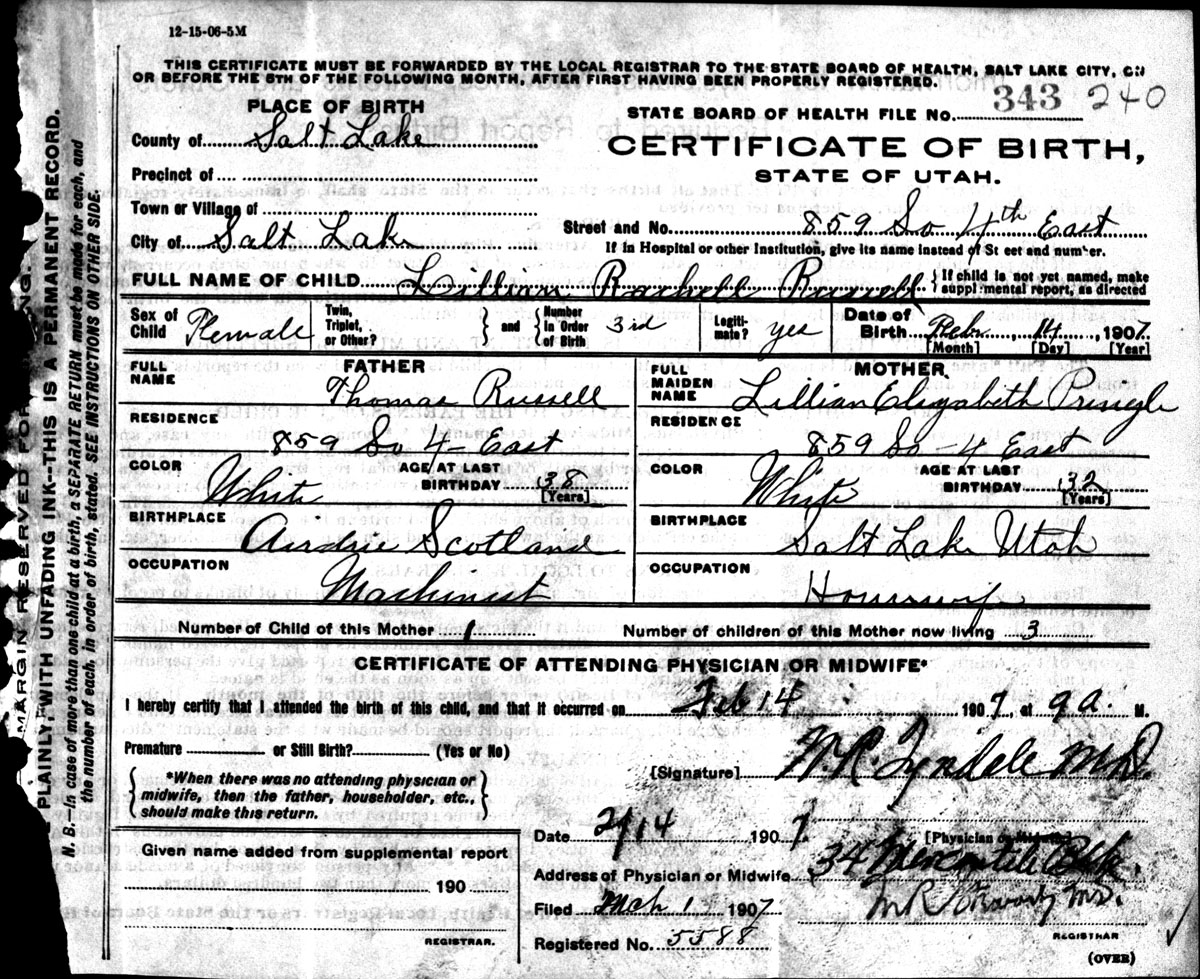 12-15-06-5M
THIS CERTIFICATE MUST BE FORWARDED BY THE LOCAL REGISTRAR TO THE STATE BOARD OF HEALTH, SALT LAKE CITY, ON
OR BEFORE THE 5TH OF THE FOLLOWING MONTH, AFTER FIRST HAVING BEEN PROPERLY REGISTERED.
PLACE OF BIRTH
STATE BOARD OF HEALTH FILE NO. 343 240
County of Salt Lake
CERTIFICATE OF BIRTH,
STATE OF UTAH.
Precinct of
Town or Village of
Street and No. 859 So 4th East
City of Salt Lake
If in Hospital or other Institution, give its name instead of St eet and number.
FULL NAME OF CHILD Lillian Rachell Russell
If child is not yet named, make
suppl mental report, as directed
Sex of Child Female
Twin, Triplet, or Other?
and
Number in Order of Birth 3rd
Legitimate? yes
Date of Birth Feby 14, 1907.
[Month] [Day] [Year]
FATHER
FULL NAME Thomas Russell
RESIDENCE
859 So 4 - East
COLOR White
AGE AT LAST BIRTHDAY 38
[Years]
BIRTHPLACE
Airdrie Scotland
OCCUPATION
Machinist
MOTHER
FULL MAIDEN NAME Lillian Elizabeth Pringle
RESIDENCE
859 So - 4 East
COLOR White
AGE AT LAST BIRTHDAY 32
[Years]
BIRTHPLACE
Salt Lake Utah
OCCUPATION
Housewife
Number of Child of this Mother 1
Number of children of this Mother now living 3
CERTIFICATE OF ATTENDING PHYSICIAN OR MIDWIFE*
I hereby certify that I attended the birth of this child, and that it occurred on Feb 14 1907, at 9 a. M.
Premature or Still Birth? (Yes or No)
*When there was no attending physician or
midwife, then the father, householder, etc.,
should make this return.
[Signature] W.R. Tyndale M.D.
Date 2/14 1907.
[Physician or Midwife]
Given name added from supplemental report
190
REGISTRAR.
Address of Physician or Midwife 34 Mercantile Blk.
Filed Mch 1 1907
M R Stewart, MD.
Registered No. 5588
REGISTRAR
(OVER)
MARGIN RESERVED FOR
PLAINLY, WITH UNFADING INK--THIS IS A PERMANENT RECORD.
N. B.--In case of more than one child at a birth, a SEPARATE RETURN must be made for each, and
the number of each, in order of birth, stated. SEE INSTRUCTIONS ON OTHER SIDE.